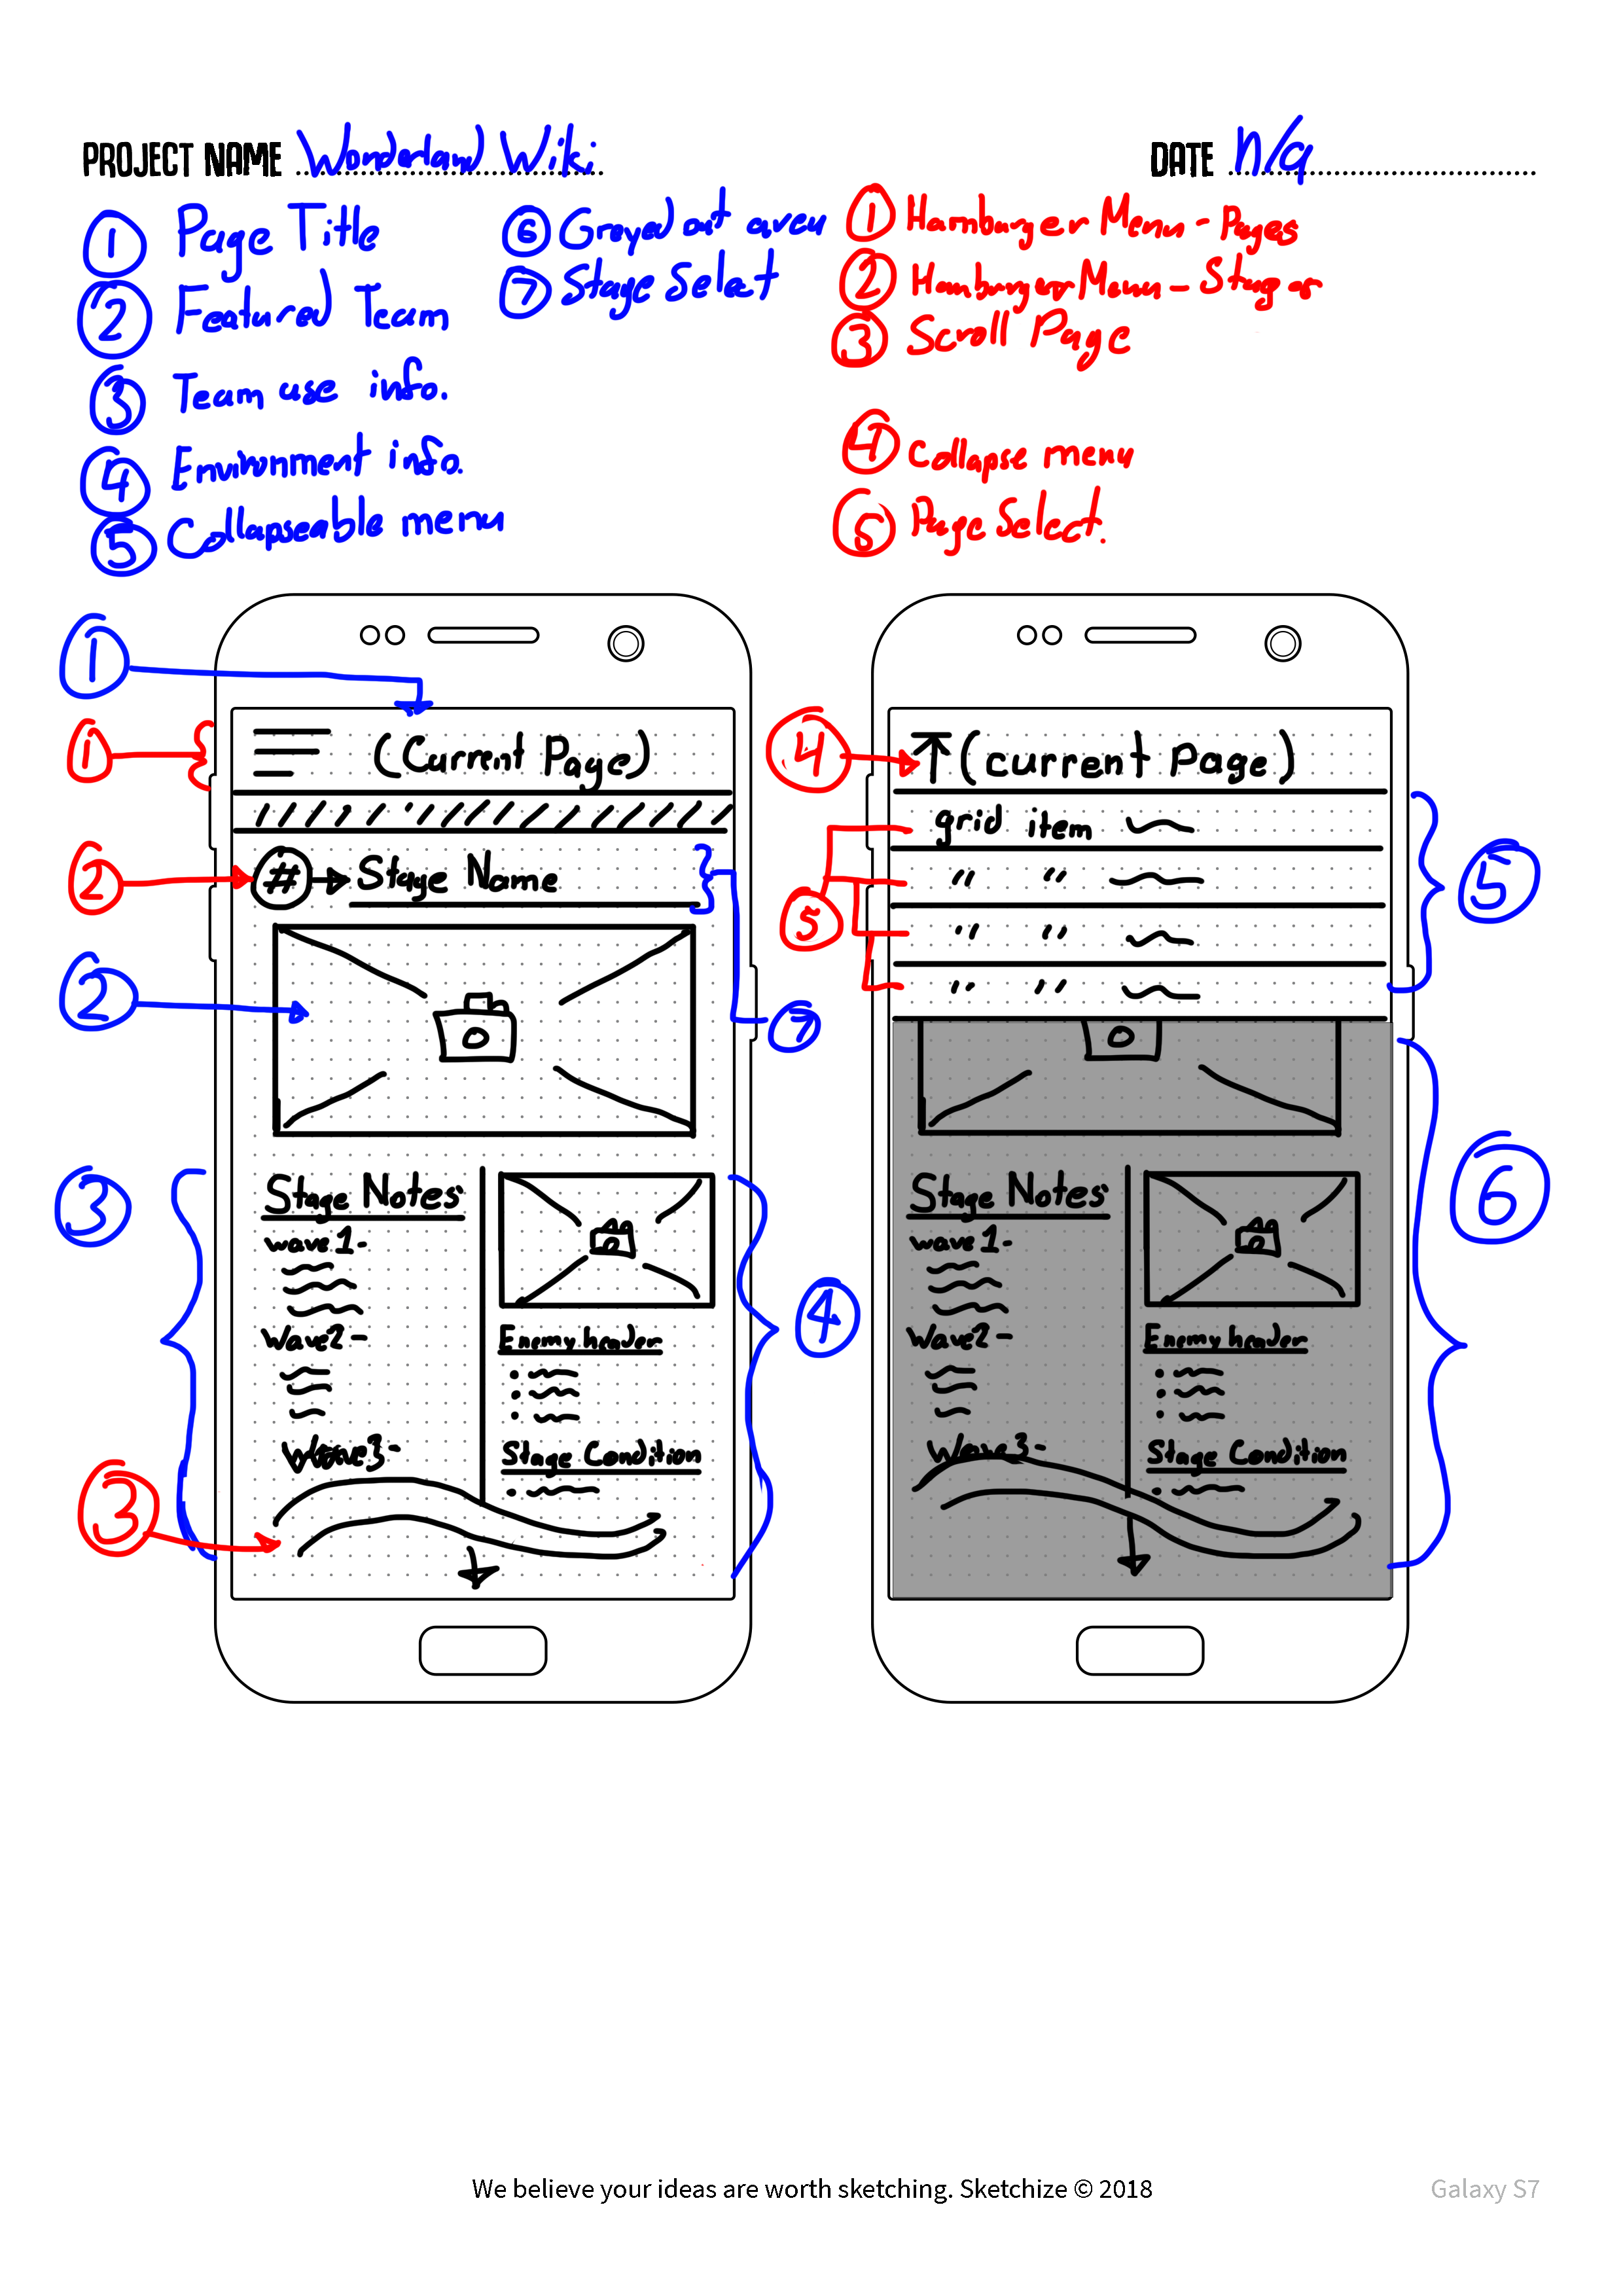 PROJECT NAME Wonderland Wiki
DATE n/a
1 Page Title
2 Featured Team
3 Team use info.
4 Environment info.
5 Collapseable menu
6 Greyed out area
7 Stage Select
1 Hamburger Menu - Pages
2 Hamburger Menu - Stages
3 Scroll Page
4 Collapse menu
5 Page Select.
1
1
(Current Page)
2
# Stage Name
2
7
3
Stage Notes
wave 1-
Wave 2-
Wave 3-
Enemy header
Stage Condition
4
3
4
(current Page)
5
grid item
" "
" "
" "
5
6
Stage Notes
wave 1-
Wave 2-
Wave 3-
Enemy header
Stage Condition
We believe your ideas are worth sketching. Sketchize © 2018
Galaxy S7